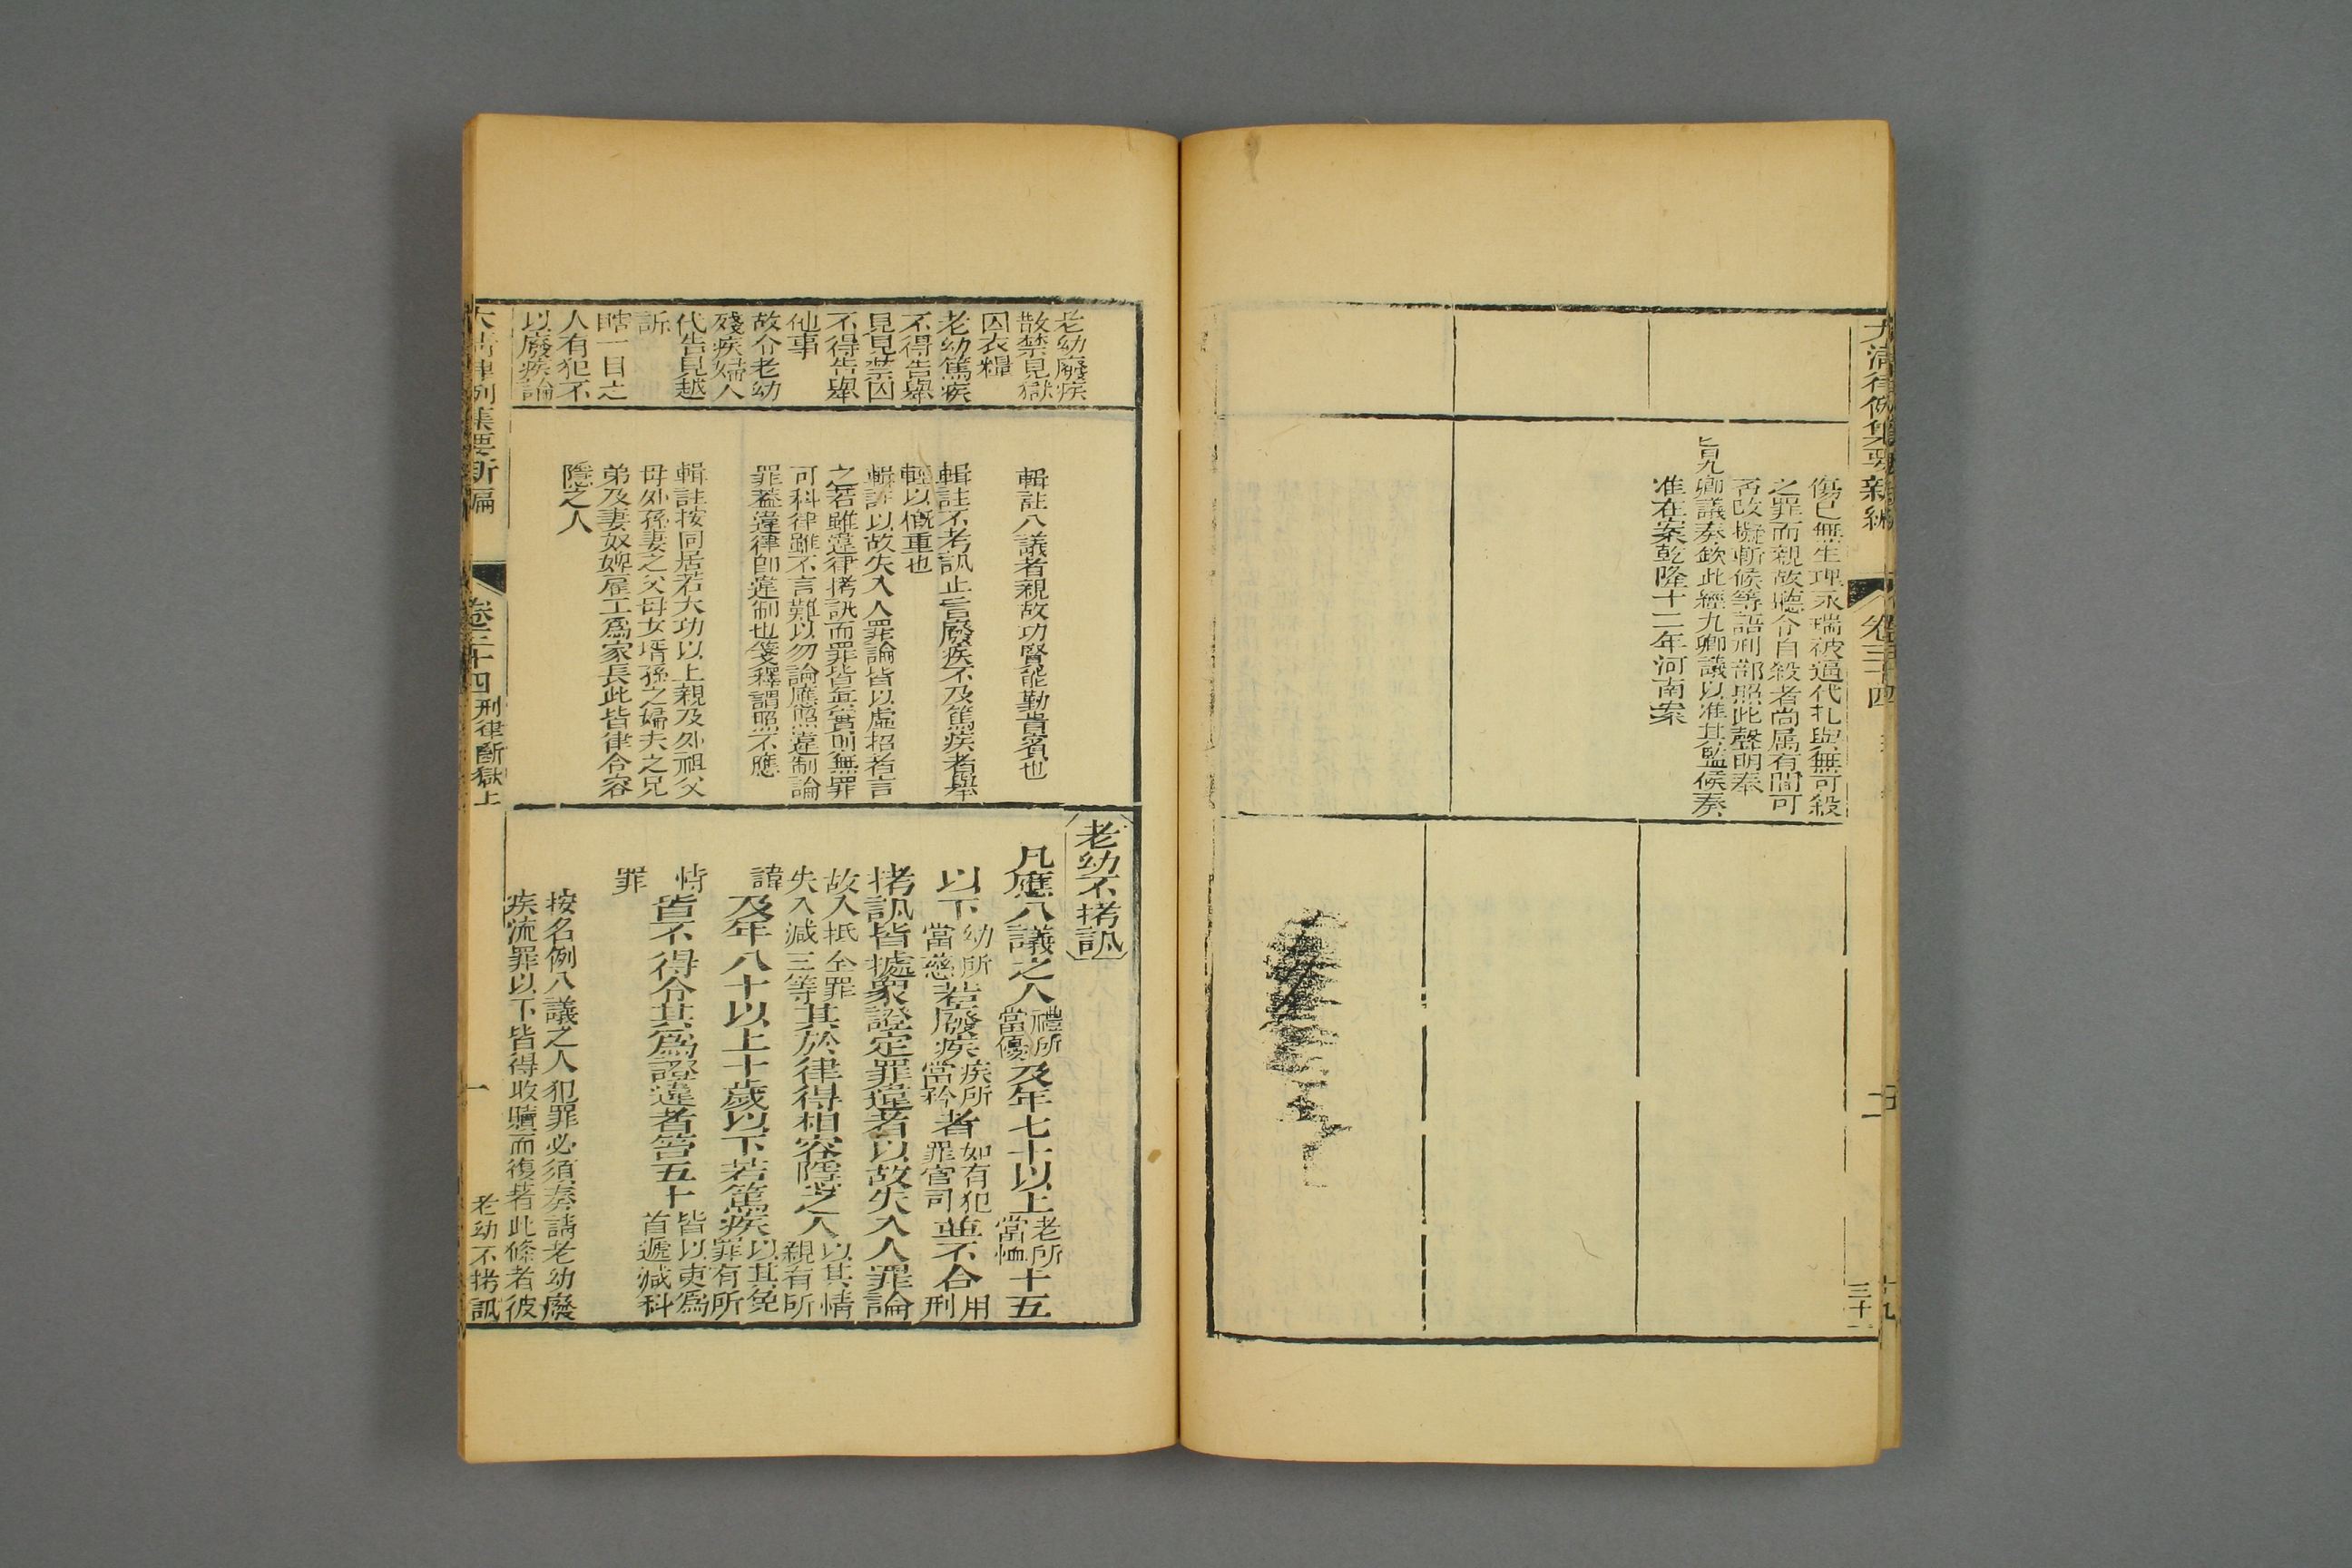 大清律例集要新編
卷三十四
三十一
傷已無生理永瑞被逼代扎與無可殺
之罪而親故聽令自殺者尚屬有間可
否改擬斬候等語刑部照此聲明奉
旨九卿議奏欽此經九卿議以准其監候奏
准在案乾隆十二年河南案
老幼廢疾
散禁見獄
囚衣糧
老幼篤疾
不得告舉
見見禁囚
不得告舉
他事
故令老幼
殘疾婦人
代告見越
訴
瞎一目之
人有犯不
以廢疾論
輯註八議者親故功賢能勤貴賓也
輯註不考訊止言廢疾不及篤疾者舉
輕以槪重也
輯註以故失入人罪論皆以虛招者言
之若雖違律拷訊而罪皆無實則無罪
可科律雖不言難以勿論應照違制論
罪蓋違律卽違制也箋釋謂照不應
輯註按同居若大功以上親及外祖父
母外孫妻之父母女壻孫之婦夫之兄
弟及妻奴婢雇工爲家長此皆律令容
隱之人
老幼不拷訊
凡應八議之人禮所當優及年七十以上老所當恤十五
以下幼所當慈若廢疾疾所當矜者如有犯罪官司並不合用刑
拷訊皆據衆證定罪違者以故失入人罪論
故入抵全罪失入減三等其於律得相容隱之人以其情親有所
諱及年八十以上十歲以下若篤疾以其免罪有所
恃皆不得令其爲證違者笞五十皆以吏爲首遞減科
罪
按名例八議之人犯罪必須奏請老幼廢
疾流罪以下皆得收贖而復著此條者彼
大清律例集要新編
卷三十四
刑律斷獄上
一
老幼不拷訊